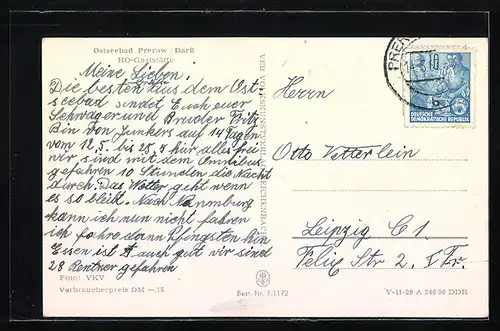 Ostseebad Prerow / Darß
HO-Gaststätte
Meine Lieben!
Die besten aus dem Ost
seebad sindet Euch euer
Schwager und Brudler Fritz
Bin von Junkers auf 14 Tagen
vom 12.5. bis 25.5 für alles frei
wir sind mit dem Omnibus
gefahren 10 Stunden die Nacht
durch. Das Wetter geht wenn
es so bleibt. Nach Naumburg
kann ich nun nicht fahren
ich fahre dann Pfingsten hin
Essen ist auch gut wir sind
28 Rentner gefahren
Foto: VKV
Verbraucherpreis DM —,15
Best.-Nr. 1/1172
VEB VOLKSKUNSTVERLAG REICHENBACH
DEUTSCHE
DEMOKRATISCHE REPUBLIK
Herrn
Otto Vetterlein
Leipzig C1.
Felix Str 2. I Tr.
V-11-28 A 246/56 DDR